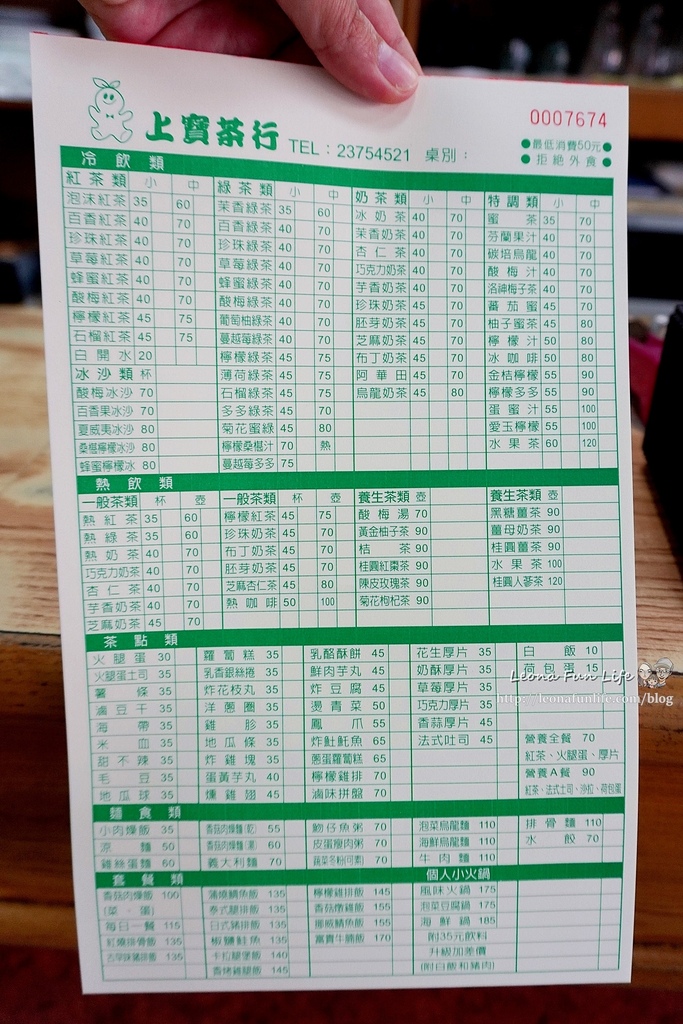 上寶茶行 TEL：23754521 桌別：
0007674
●最低消費50元●
●拒絕外食●
冷飲類
紅茶類 小 中
泡沫紅茶 35 60
百香紅茶 40 70
珍珠紅茶 40 70
草莓紅茶 40 70
蜂蜜紅茶 40 70
酸梅紅茶 40 70
檸檬紅茶 45 75
石榴紅茶 45 75
白開水 20
冰沙類 杯
酸梅冰沙 70
百香果冰沙 70
夏威夷冰沙 80
桑椹檸檬冰沙 80
蜂蜜檸檬冰 80
綠茶類 小 中
茉香綠茶 35 60
百香綠茶 40 70
珍珠綠茶 40 70
草莓綠茶 40 70
蜂蜜綠茶 40 70
酸梅綠茶 40 70
葡萄柚綠茶 40 70
蔓越莓綠茶 40 70
檸檬綠茶 45 75
薄荷綠茶 45 75
石榴綠茶 45 75
多多綠茶 45 70
菊花蜜綠 45 80
檸檬桑椹汁 70 熱
蔓越莓多多 75
奶茶類 小 中
冰奶茶 40 70
茉香奶茶 40 70
杏仁茶 40 70
巧克力奶茶 40 70
芋香奶茶 40 70
珍珠奶茶 45 70
胚芽奶茶 45 70
芝麻奶茶 45 70
布丁奶茶 45 70
阿華田 45 70
烏龍奶茶 45 80
特調類 小 中
蜜茶 35 70
芬蘭果汁 40 70
碳培烏龍 40 70
酸梅汁 40 70
洛神梅子茶 40 70
蕃茄蜜 45 70
柚子蜜茶 45 80
檸檬汁 50 80
冰咖啡 50 80
金桔檸檬 55 90
檸檬多多 55 90
蛋蜜汁 55 100
愛玉檸檬 55 100
水果茶 60 120
熱飲類
一般茶類 杯 壺
熱紅茶 35 60
熱綠茶 35 60
熱奶茶 40 70
巧克力奶茶 40 70
杏仁茶 40 70
芋香奶茶 40 70
芝麻奶茶 45 70
一般茶類 杯 壺
檸檬紅茶 45 75
珍珠奶茶 45 70
布丁奶茶 45 70
胚芽奶茶 45 70
芝麻杏仁茶 45 80
熱咖啡 50 100
養生茶類 壺
酸梅湯 70
黃金柚子茶 90
桔茶 90
桂圓紅棗茶 90
陳皮玫瑰茶 90
菊花枸杞茶 90
養生茶類 壺
黑糖薑茶 90
薑母奶茶 90
桂圓薑茶 90
水果茶 100
桂圓人蔘茶 120
茶點類
火腿蛋 30
火腿蛋土司 35
薯條 35
滷豆干 35
海帶 35
米血 35
甜不辣 35
毛豆 35
地瓜球 35
蘿蔔糕 35
乳香銀絲捲 35
炸花枝丸 35
洋蔥圈 35
雞胗 35
地瓜條 35
炸雞塊 35
蛋黃芋丸 40
燻雞翅 45
乳酪酥餅 45
鮮肉芋丸 45
炸豆腐 45
燙青菜 50
鳳爪 55
炸魟魠魚 65
蔥蛋蘿蔔糕 65
檸檬雞排 70
滷味拼盤 70
花生厚片 35
奶酥厚片 35
草莓厚片 35
巧克力厚片 35
香蒜厚片 45
法式吐司 45
白飯 10
荷包蛋 15
營養全餐 70
紅茶、火腿蛋、厚片
營養A餐 90
紅茶、法式土司、沙拉、荷包蛋
Leona Fun Life
http://leonafunlife.com/blog
麵食類
小肉燥飯 35
涼麵 50
雞絲蛋麵 60
香菇肉燥麵(乾) 55
香菇肉燥麵(湯) 60
義大利麵 70
魩仔魚粥 70
皮蛋瘦肉粥 70
蔬菜冬粉(可素) 70
泡菜烏龍麵 110
海鮮烏龍麵 110
牛肉麵 110
排骨麵 110
水餃 70
套餐類
香菇肉燥飯 100
(菜、蛋)
每日一餐 115
紅燒排骨飯 135
古早味豬排飯 135
蒲燒鯛魚飯 135
泰式腿排飯 135
日式豬排飯 135
椒鹽鮭魚 135
卡拉腿堡飯 140
香烤雞腿飯 145
檸檬雞排飯 145
香菇燉雞飯 155
挪威鯖魚飯 155
富貴牛腩飯 170
個人小火鍋
風味火鍋 175
泡菜豆腐鍋 175
海鮮鍋 185
附35元飲料
升級加差價
(附白飯和豬肉)